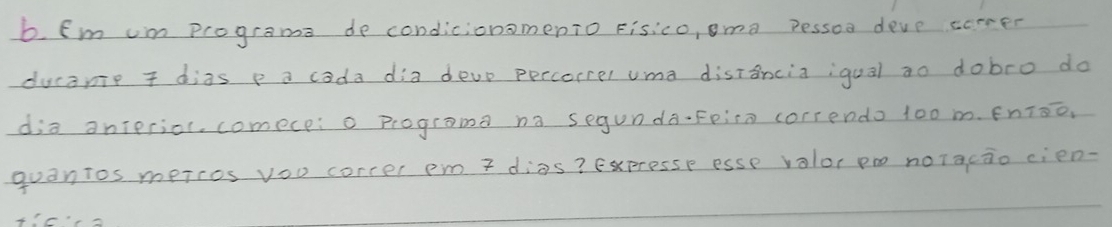 b. Em um programa de condicionamento Físico, uma pessoa deve correr
durante 7 dias e a cada dia deve percorrer uma distância igual ao dobro do
dia anterior. comecei o programa na segunda-Feira correndo 100 m. Então,
quantos metros vou correr em 7 dias? Expresse esse valor em notação cien-
tífica